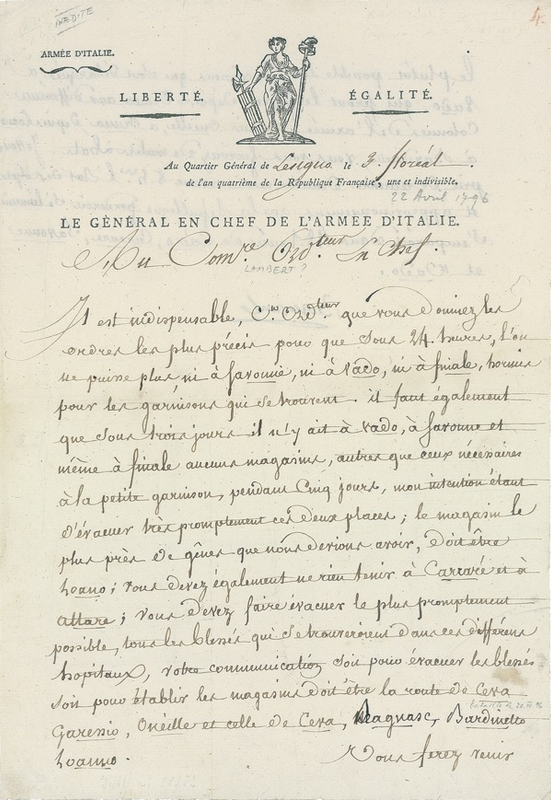 INEDITE
4.
ARMÉE D'ITALIE.
LIBERTÉ. ÉGALITÉ.
Au Quartier Général de Lesegno le 3. floréal
de l'an quatrième de la République Française, une et indivisible.
22 Avril 1796
LE GÉNÉRAL EN CHEF DE L'ARMÉE D'ITALIE.
Au Com.re Ord.teur en Chef.
LAMBERT?
Il est indispensable, C.en Ord.teur que vous donniez les
ordres les plus précis pour que sous 24. heures, l'on
ne puisse plus, ni à Savonne, ni à Vado, ni à finale, hormis
pour les garnisons qui se trouvent. il faut également
que sous trois jours il n'y ait à Vado, à Savonne et
même à finale aucuns magasins, autres que ceux nécessaires
à la petite garnison, pendant Cinq jours, mon intention étant
d'évacuer très promptement ces deux places; le magasin le
plus près de gênes que nous devions avoir, doit être
Loano; vous devez également ne rien tenir à Carcaré et à
altare; vous devez faire évacuer le plus promptement
possible, tous les blessés qui se trouveroient dans ces différens
hopitaux, votre communication soit pour évacuer les blessés
soit pour établir les magasins doit être la route de Ceva
Garessio, Oneille et celle de Ceva, Bagnasc, Bardinetto
Loanno.
Vous ferez venir